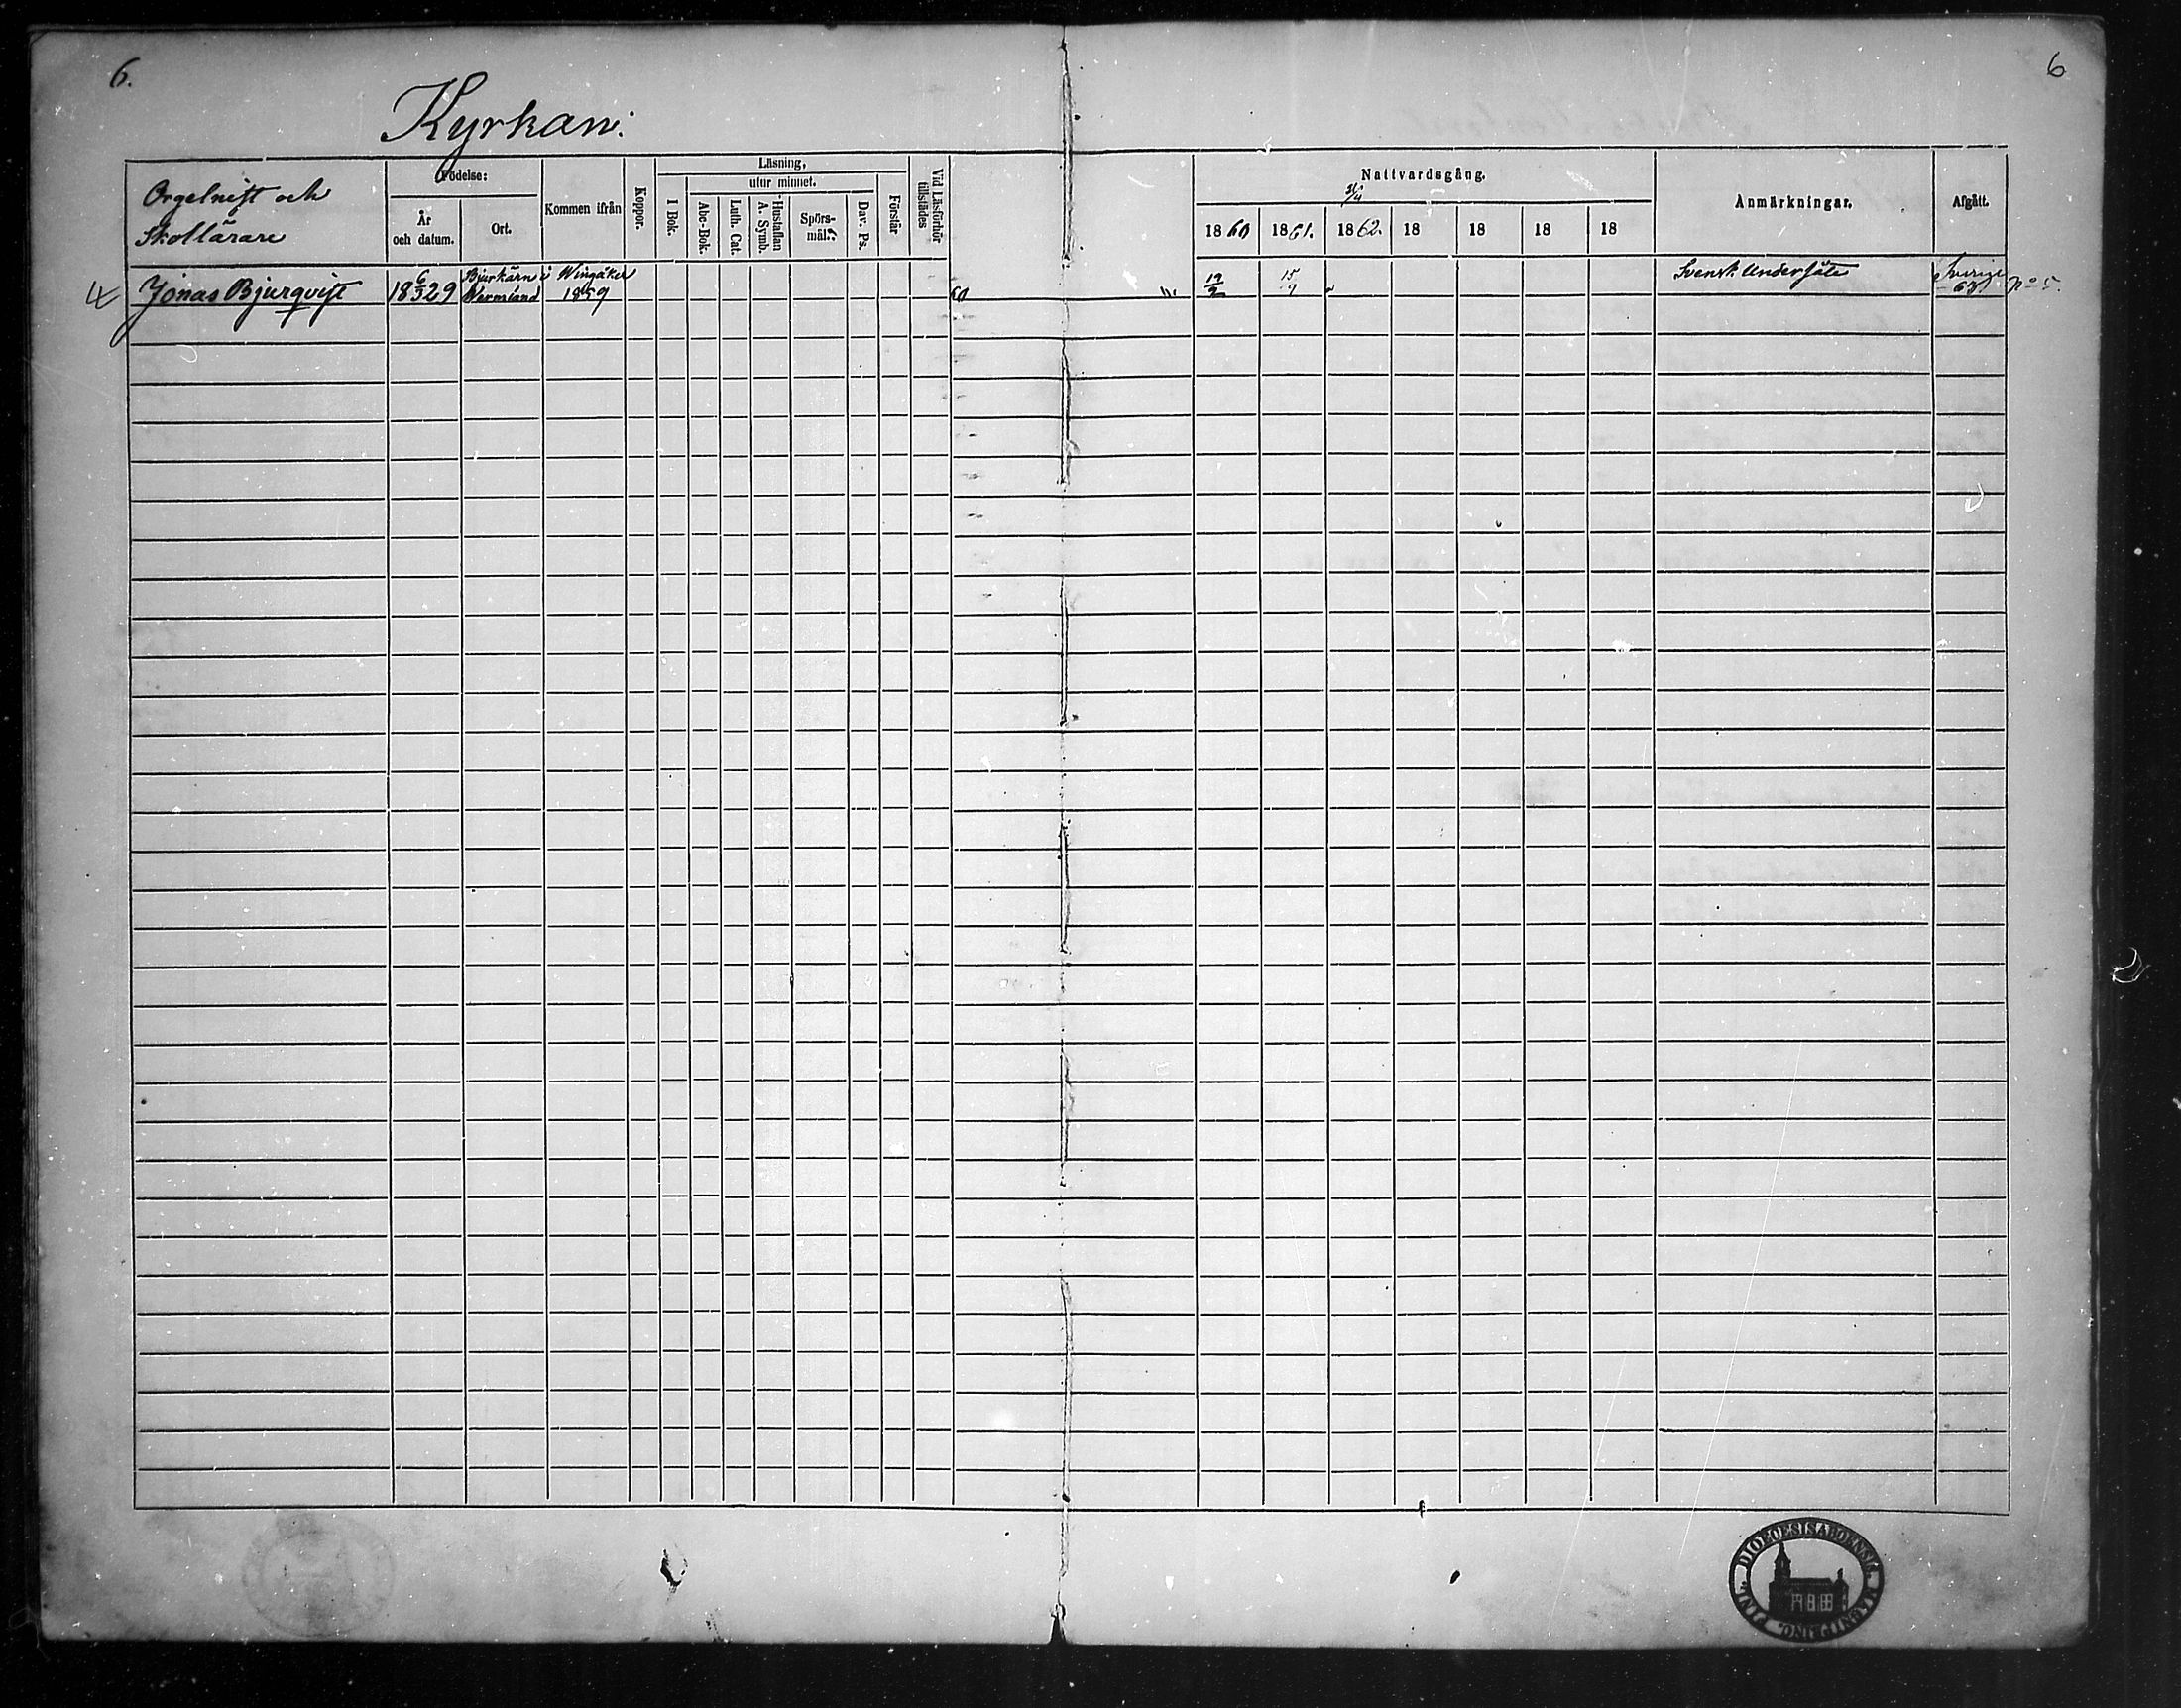 6.
6
Kyrkan:
Orgelnist och
Skollärare
Födelse:
År
och datum.
Ort.
Kommen ifrån
Koppor.
Läsning,
utur minnet.
I Bok.
Abc-Bok.
Luth. Cat.
Hustaflan
A. Symb.
Spörs-
mål.
Dav. Ps.
Förstår
Vid Läsförhör
tillstädes
Nattvardsgång.
1860
1861.
1862.
18
18
18
18
Anmärkningar.
Afgått.
Jonas Bjurqvist
18 6/3 29
Bjurkärn i
Wermland
Wingåker
1859
60
19/2
15
Svensk Undersåte
Sverige
63
No 5.
DIOECESIS ABOENSIS. MAGNI PRINC. FINL.